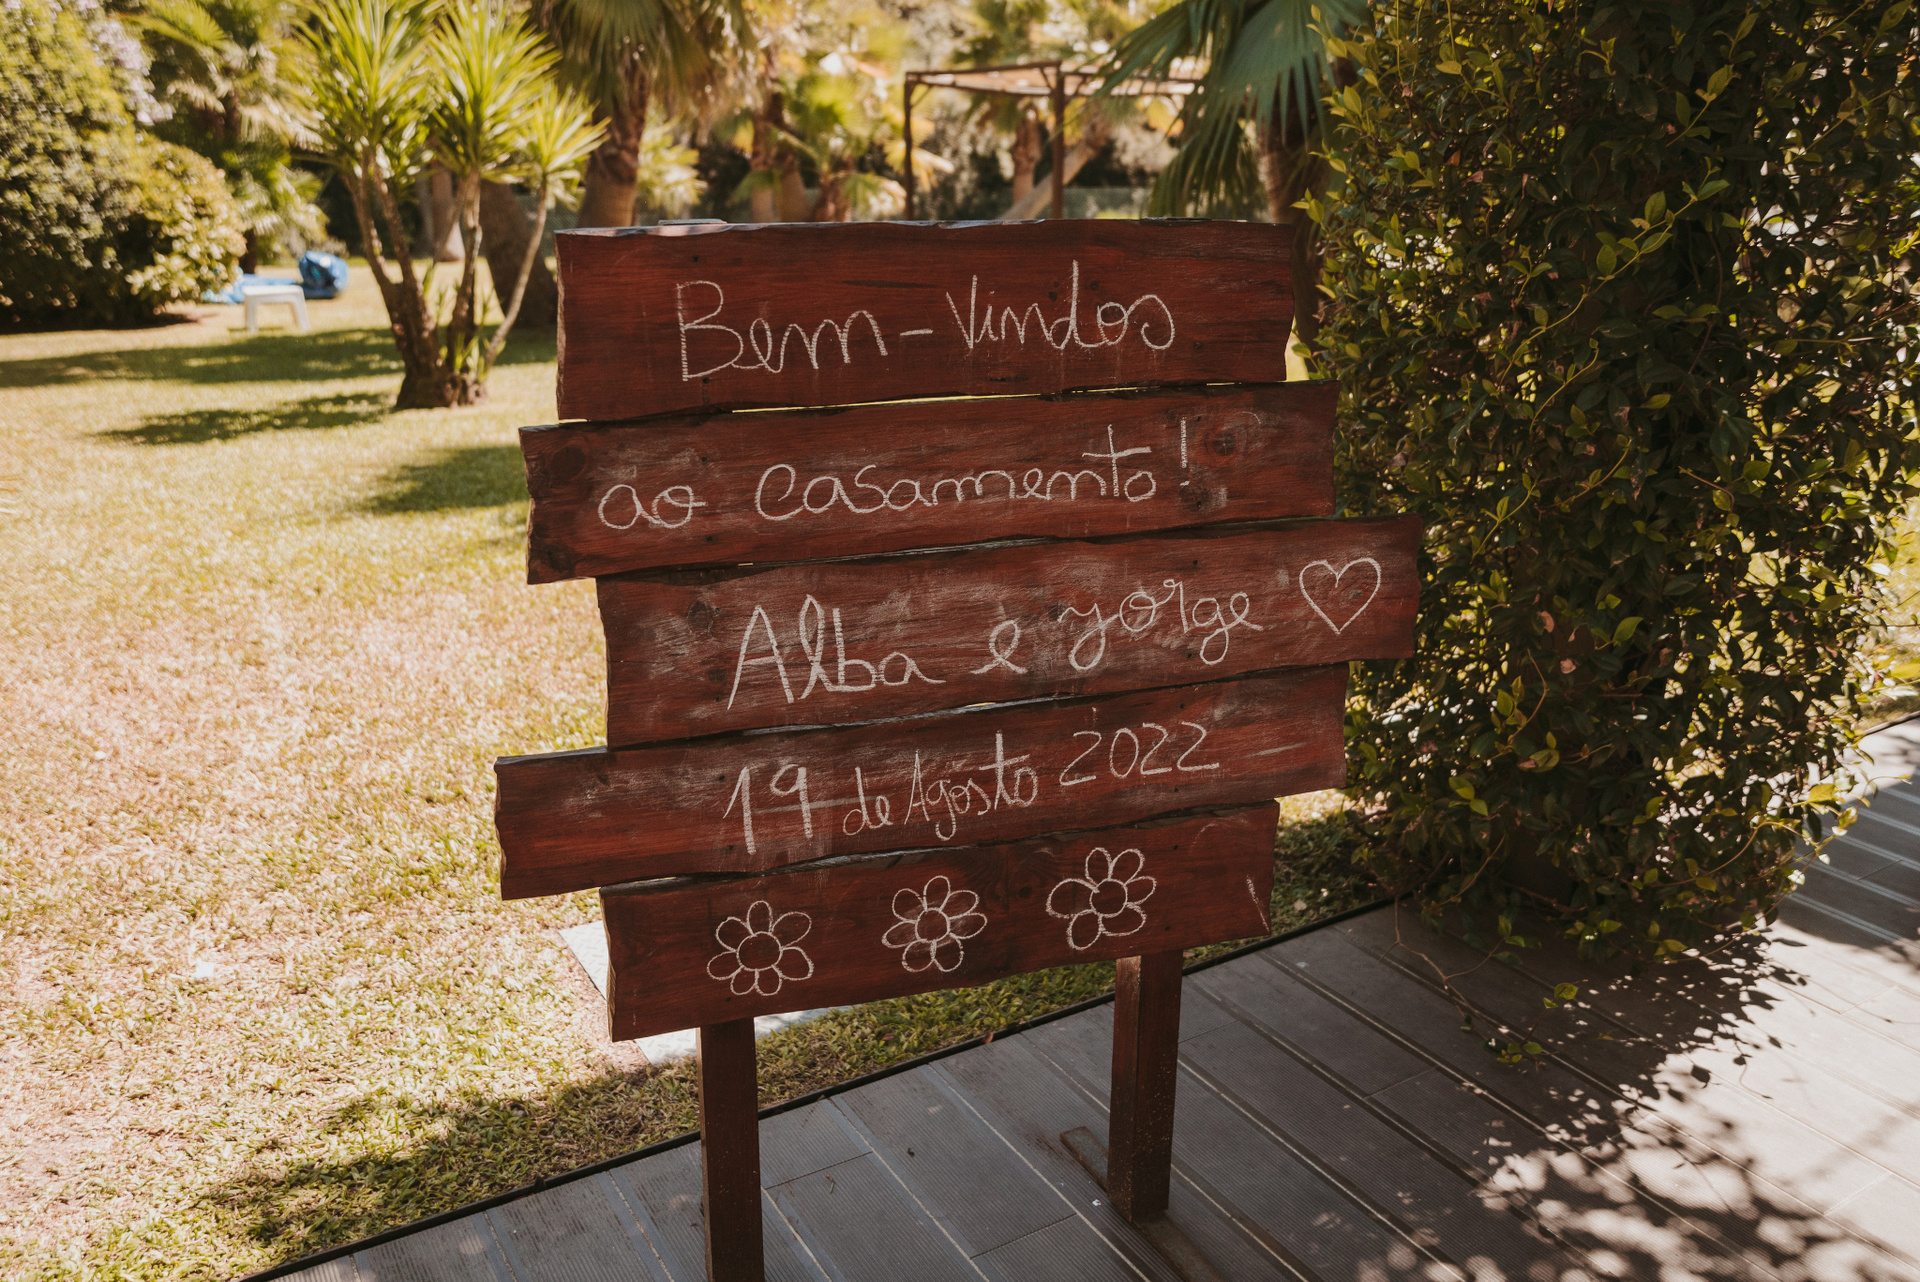 Bem-Vindos
ao casamento!
Alba e yorge ♡
19 de Agosto 2022